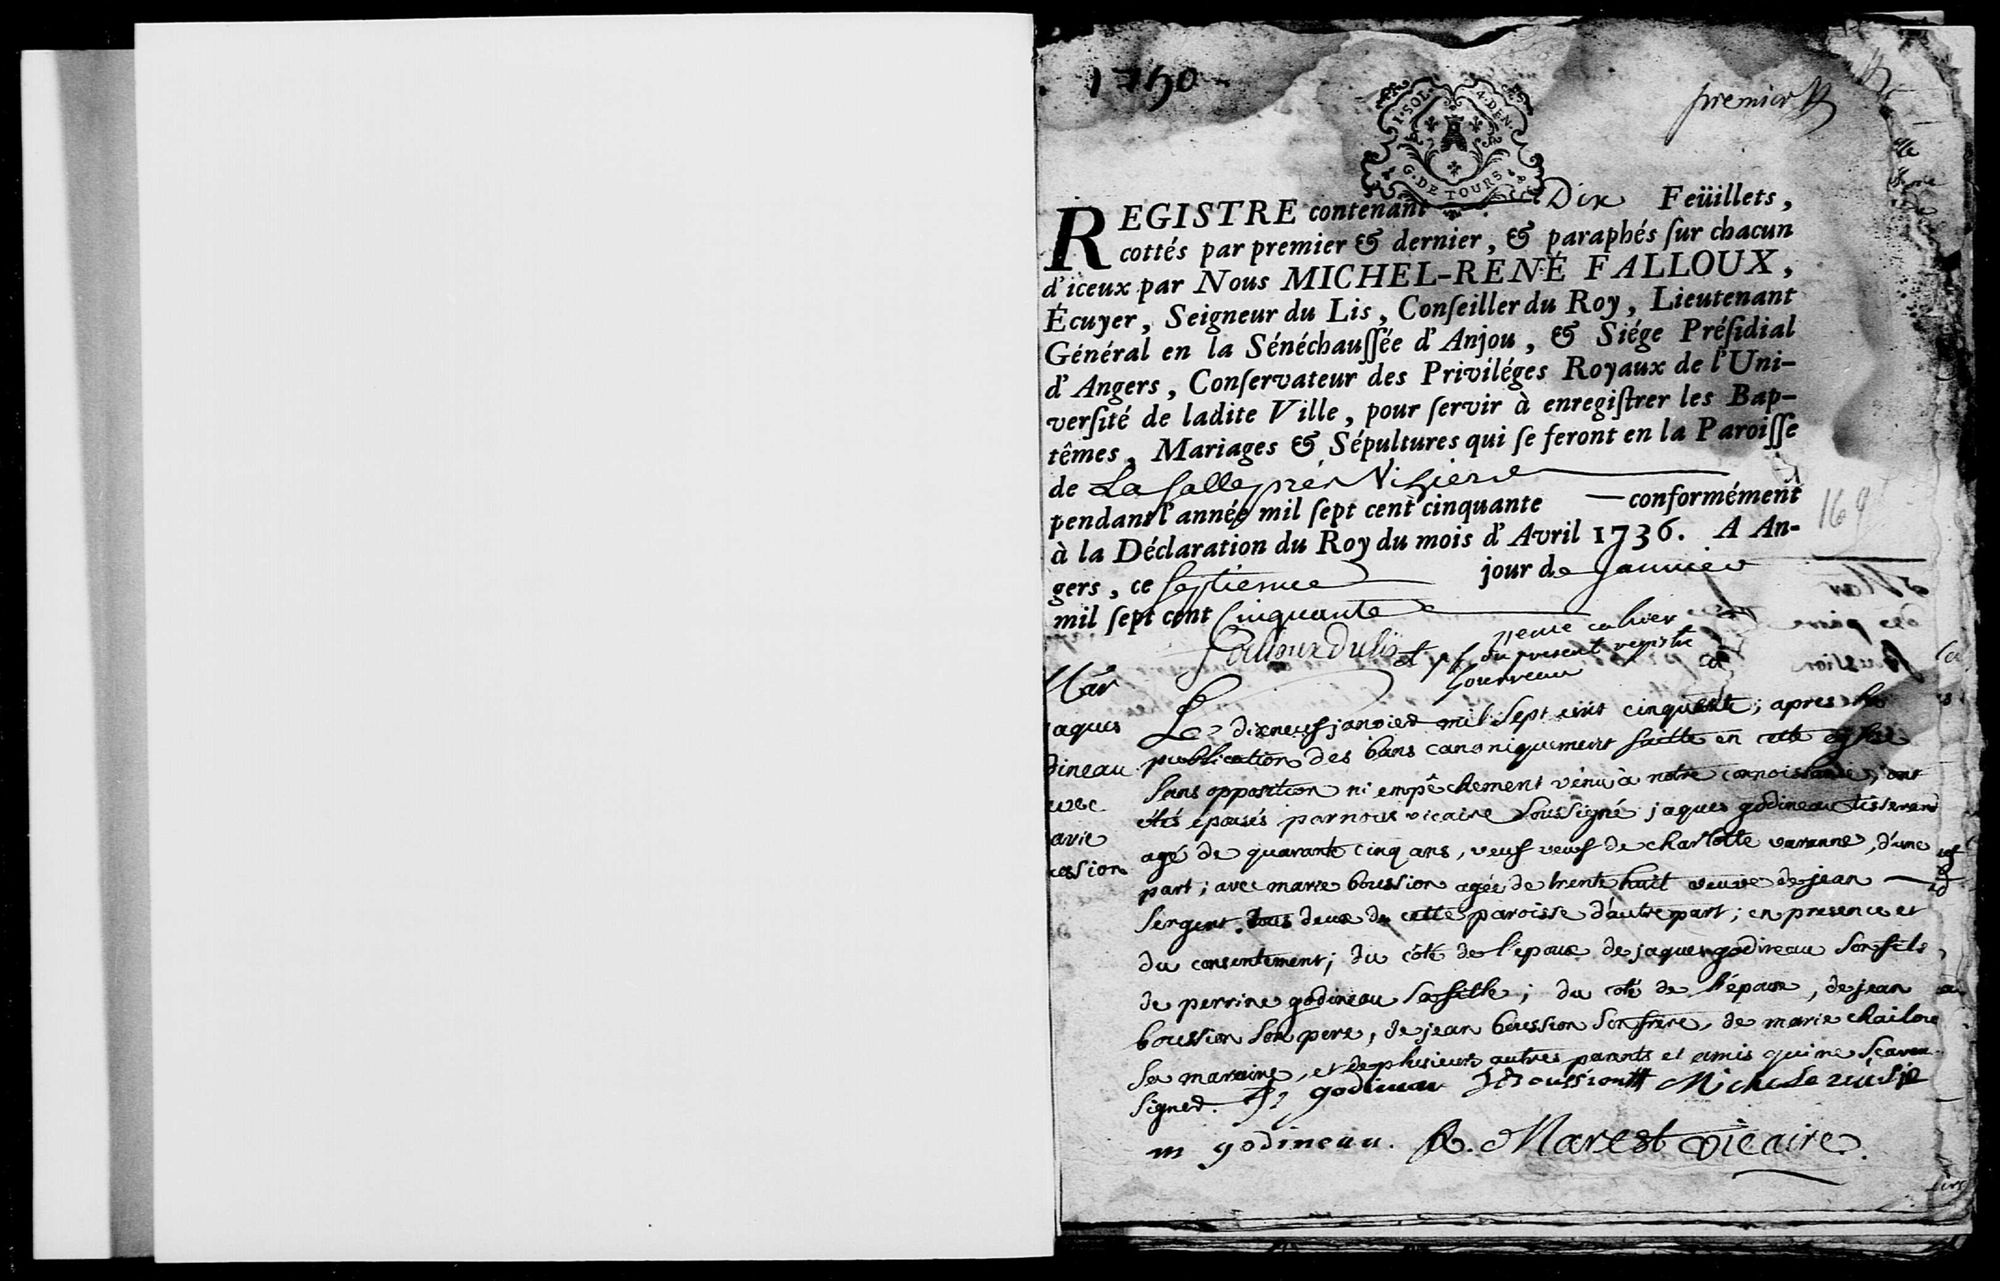 1750
premier
I·SOL· 4·DEN·
G·DE TOURS
REGISTRE contenant Dix Feüillets,
cottés par premier & dernier, & paraphés ſur chacun
d'iceux par Nous MICHEL-RENÉ FALLOUX,
Écuyer, Seigneur du Lis, Conſeiller du Roy, Lieutenant
Général en la Sénéchauſſée d'Anjou, & Siége Préſidial
d'Angers, Conſervateur des Priviléges Royaux de l'Uni-
verſité de ladite Ville, pour ſervir à enregiſtrer les Bap-
têmes, Mariages & Sépultures qui ſe feront en la Paroiſſe
de La Salle près Vihiers
pendant l'année mil ſept cent cinquante conformément
à la Déclaration du Roy du mois d'Avril 1736. A An-
gers, ce Septiesme jour de Janvier
mil ſept cent Cinquante
169
Falloux Du Lis
cahier
du present registre
Gourreau
Mar
jaques
dineau
avec
arie
ussion
Le dixneuf janvier mil Sept cent cinquante; apres la
publication des bans canoniquement faitte en cette eglise
Sans opposition ni empêchement venu à notre connoissance, ont
étés epousés par nous vicaire Soussigné jaques godineau tisserand
agé de quarante cinq ans, veuf veuf de charlotte varanne, d'une
part; avec marie boussion agée de trente huit veuve de jean
Sergent tous deux de cette paroisse d'autre part; en presence et
du consentement; du côté de l'epoux de jaques godineau Son fils
de perrine godineau Sa fille; du coté de l'épouse, de jean
boussion Son pere, de jean boussion Son frere, de marie chailou
Sa maraine, et de plusieurs autres parents et amis qui ne Scavent
Signer. godineau J Boussion Michel
m godineau. R. Marest vicaire.